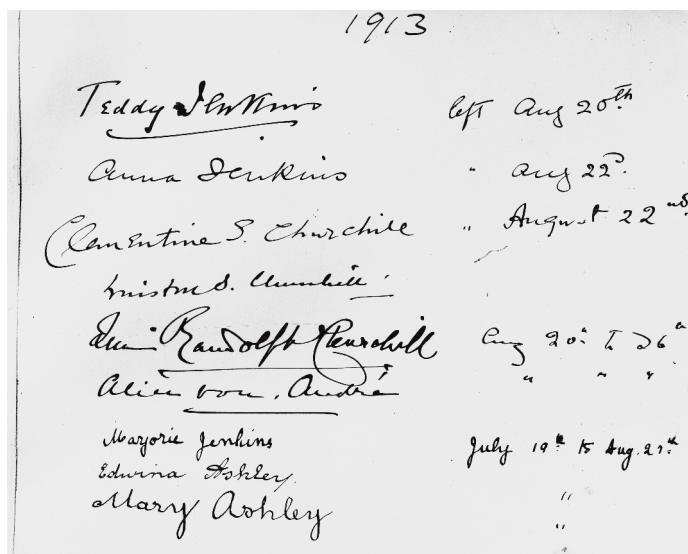 1913
Teddy Jenkins left Aug 20th
Anna Jenkins " Aug 22d.
Clementine S. Churchill " August 22nd
Winston S. Churchill.
Randolph Churchill Aug 20th to 26th
von André " " "
Marjorie Jenkins July 19th to Aug. 27th
Edwina Ashley.
Mary Ashley "
"